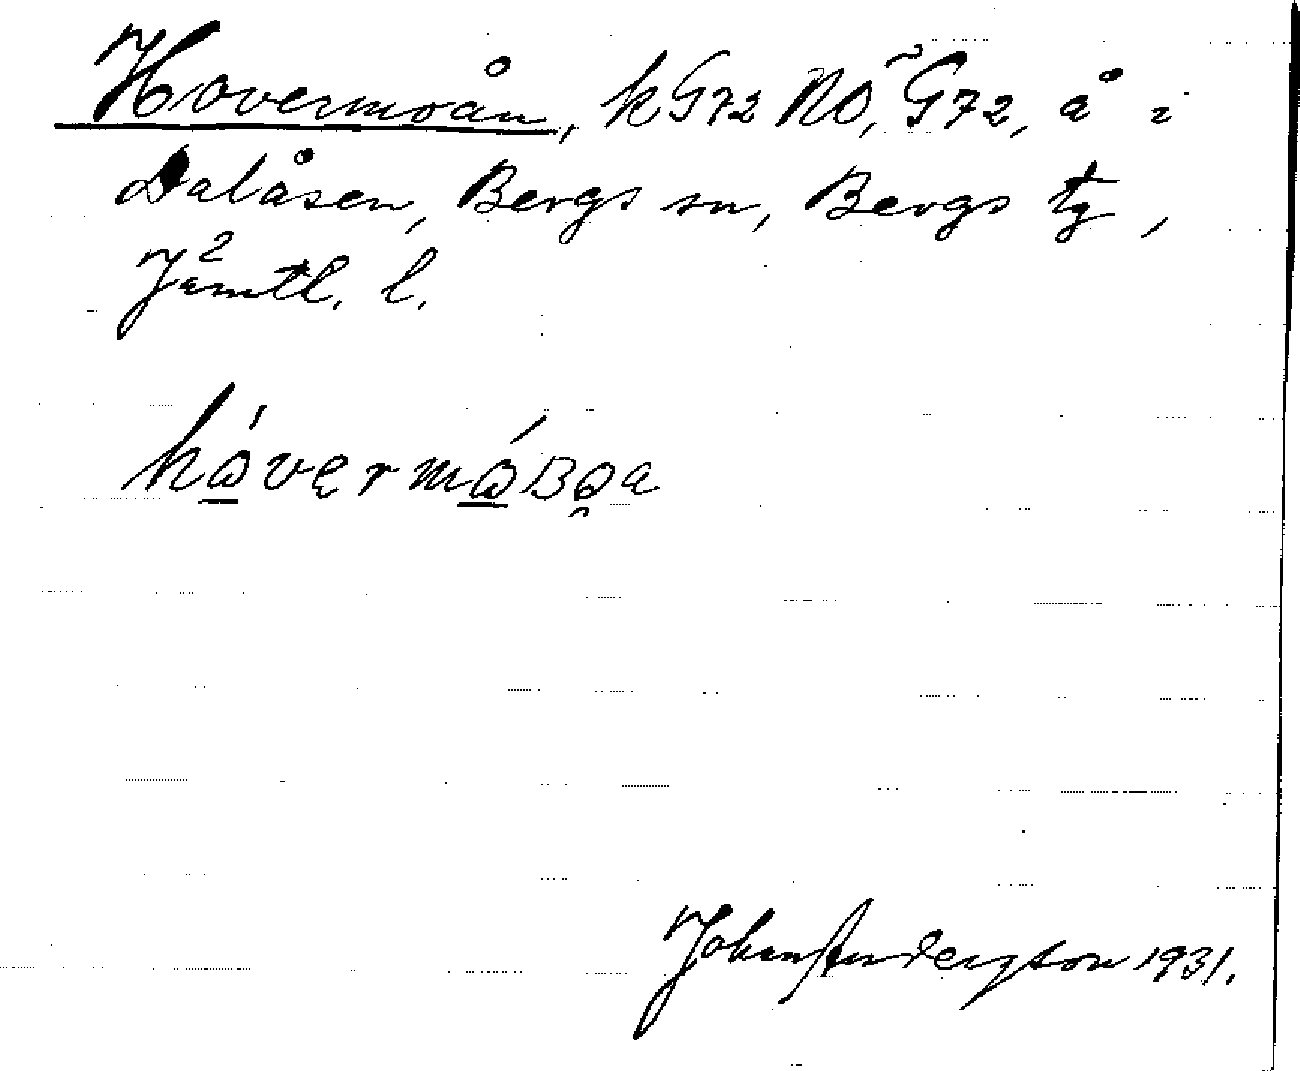 Hovermoån, k G72 NO, G̃72, å i
Dalåsen, Bergs sn, Bergs tg,
Jämtl. l.
Johan Andersson 1931.